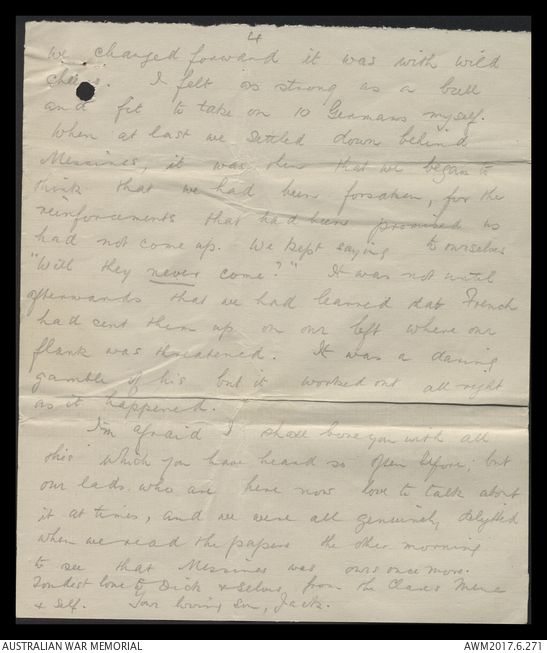 4
we charged forward it was with wild
cheers. I felt as strong as a bull
and fit to take on 10 Germans myself.
When at last we settled down behind
Messines, it was then that we began to
think that we had been forsaken, for the
reinforcements that had been promised us
had not come up. We kept saying to ourselves
"Will they never come?" It was not until
afterwards that we had learned that French
had sent them up on our left where our
flank was threatened. It was a daring
gamble of his but it worked out all right
as it happened.
I'm afraid I shall bore you with all
this which you have heard so often before, but
our lads who are here now love to talk about
it at times, and we were all genuinely delighted
when we read the papers the other morning
to see that Messines was ours once more.
Fondest love to Dick & Selves, from the
& Self. Your loving Son, Jack.
AUSTRALIAN WAR MEMORIAL
AWM2017.6.271